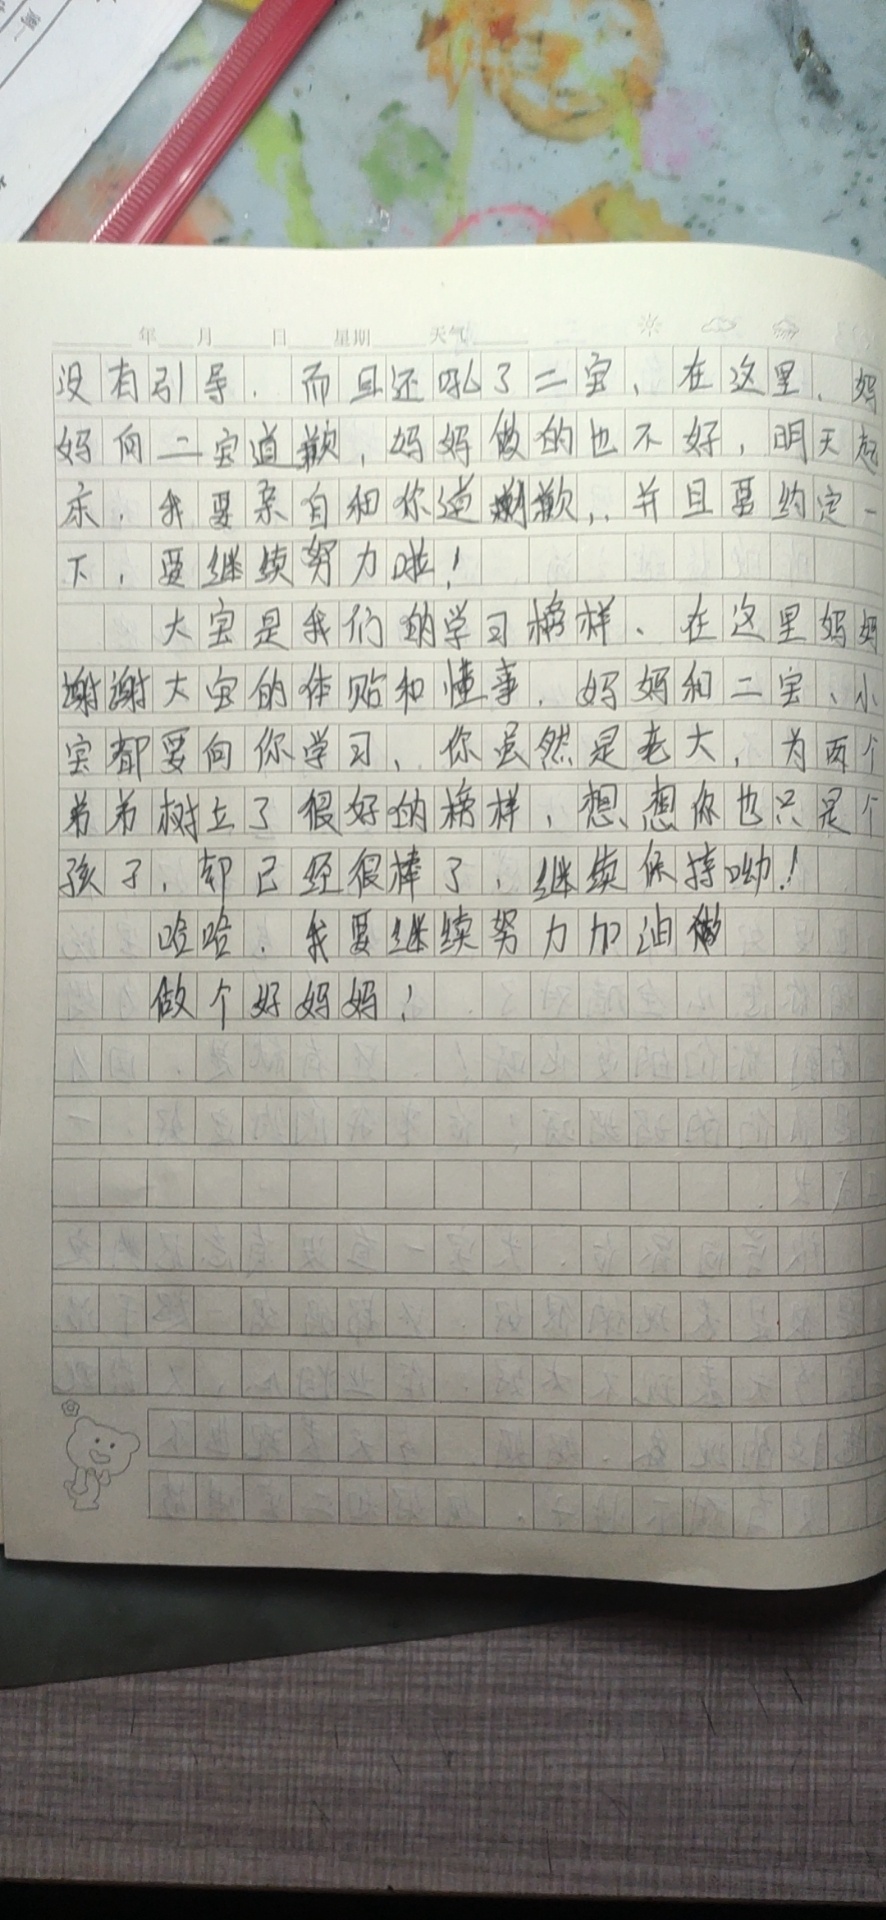 年 月 日 星期 天气
没有引导，而且还吼了二宝，在这里，妈
妈向二宝道歉，妈妈做的也不好，明天起
床，我要亲自和你道歉，并且要约定一
下，要继续努力啦！
大宝是我们的学习榜样、在这里妈妈
谢谢大宝的体贴和懂事，妈妈和二宝、小
宝都要向你学习、你虽然是老大，为两个
弟弟树立了很好的榜样，想想你也只是个
孩子，却已经很棒了，继续保持呦！
哈哈，我要继续努力加油
做个好妈妈！